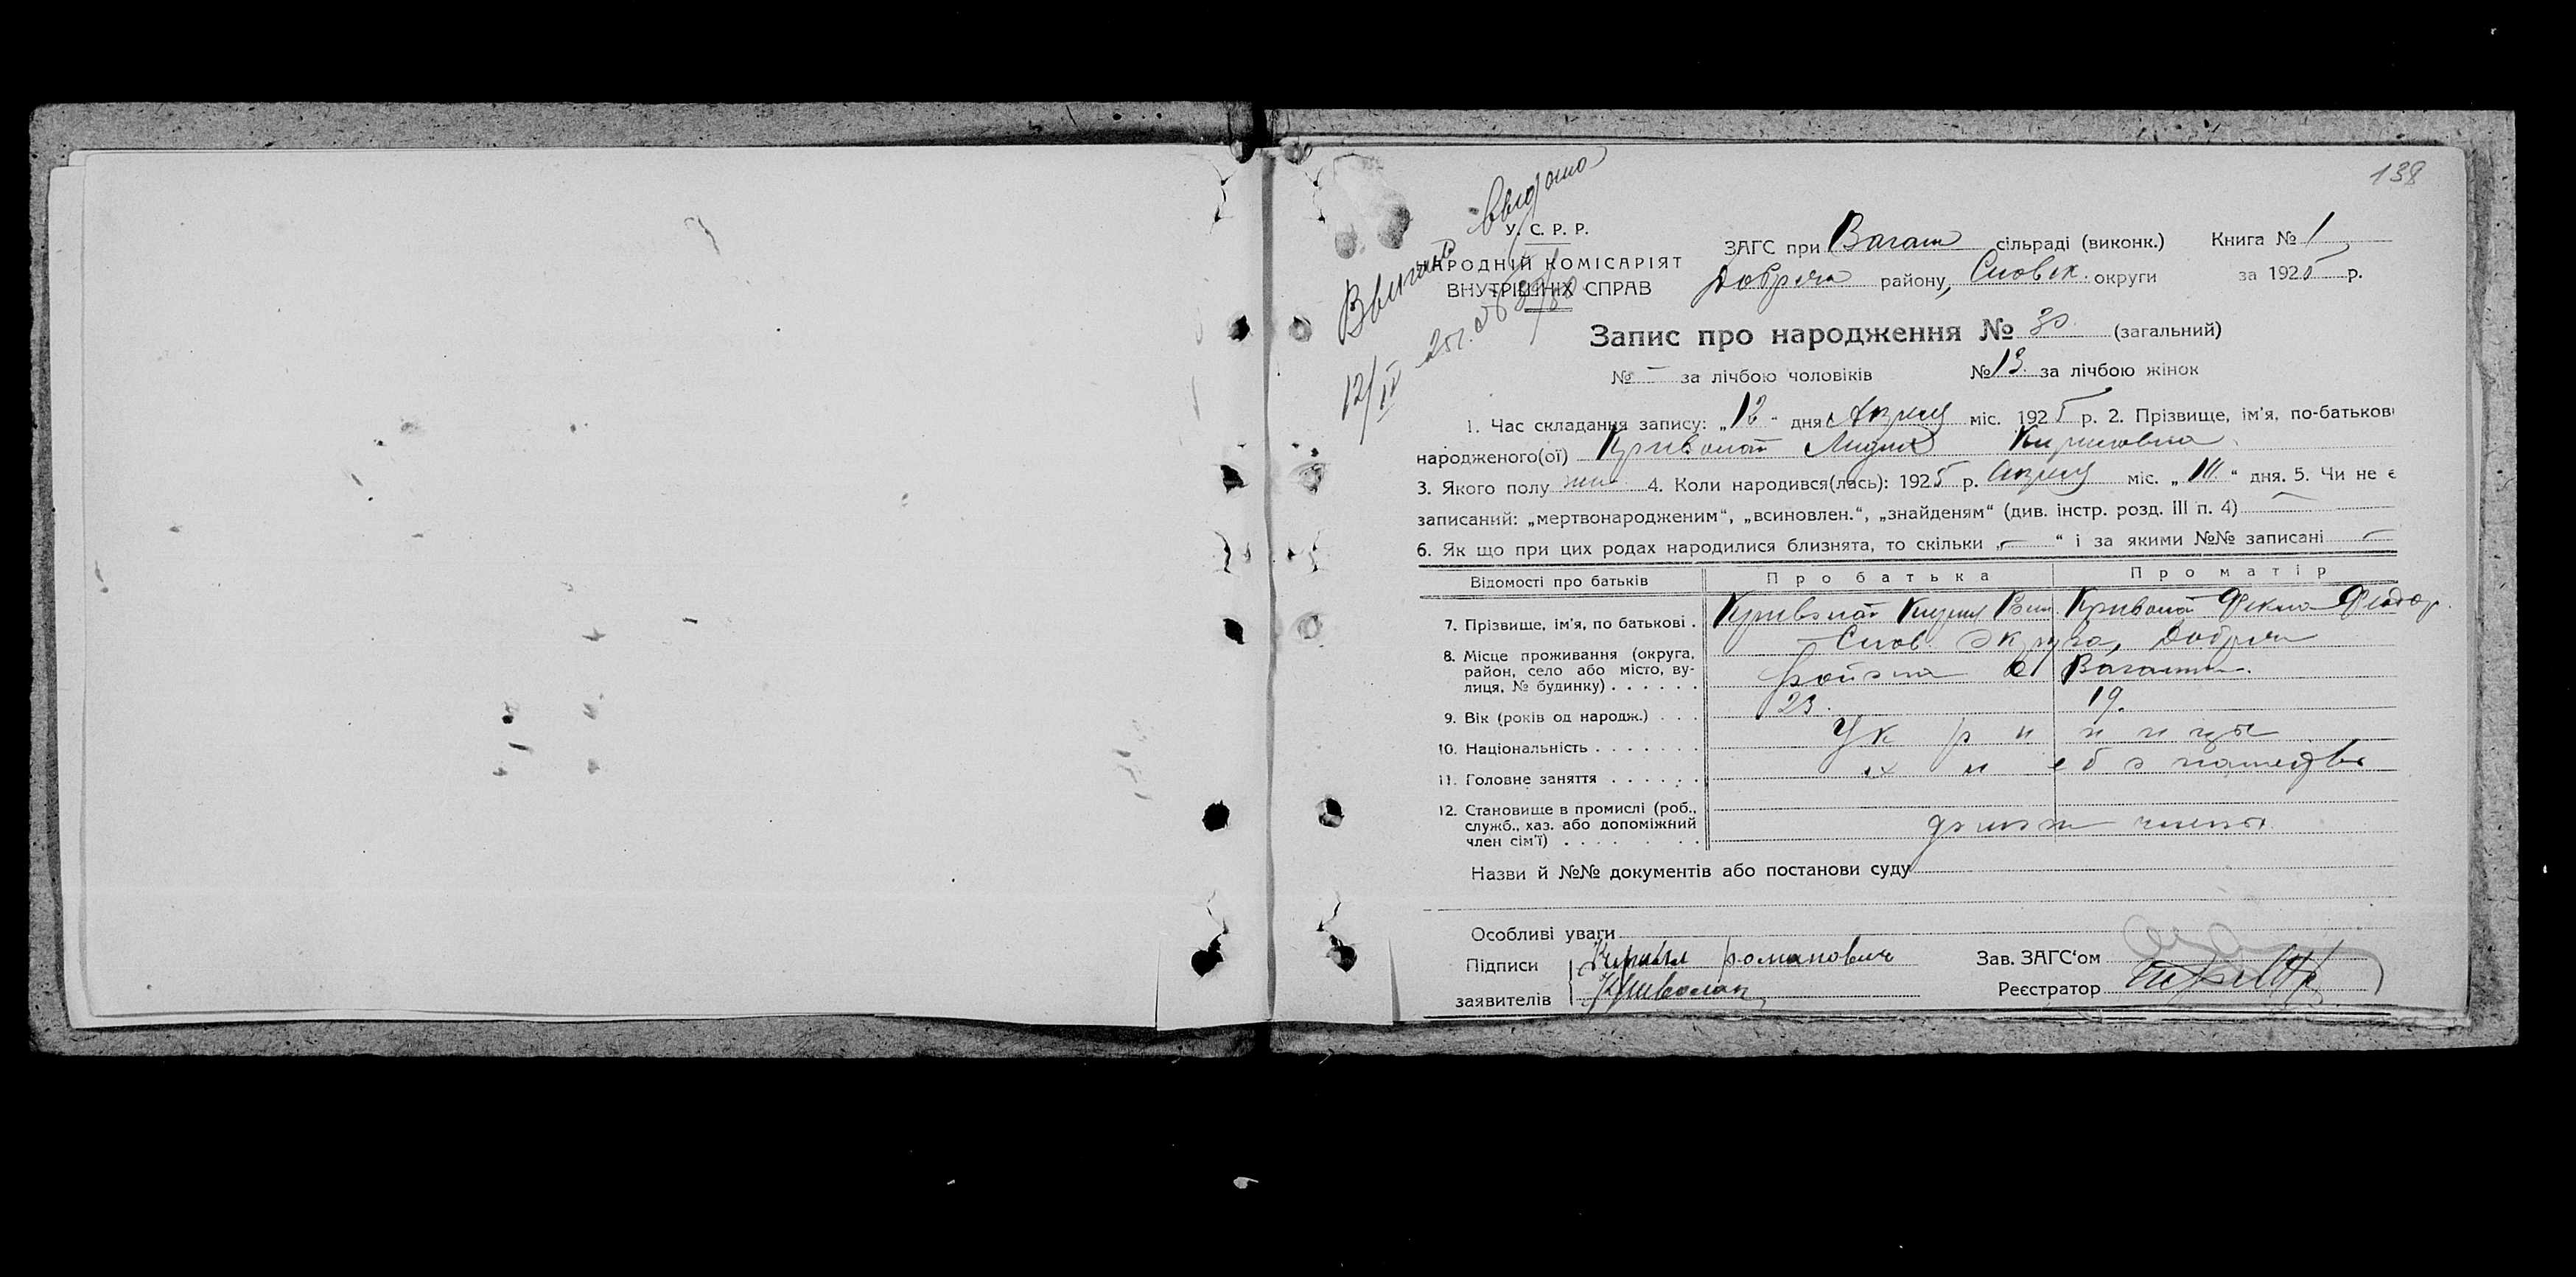 138
У. С. Р. Р.
НАРОДНІЙ КОМІСАРІЯТ
ВНУТРІШНІХ СПРАВ
ЗАГС при Ваган сільраді (виконк.) Книга № 1
району, округи за 1925 р.
Запис про народження № 30 (загальний)
№ – за лічбою чоловіків № 13. за лічбою жінок
1. Час складання запису: „12“ дня Апреля міс. 1925 р. 2. Прізвище, ім'я, по-батькові
народженого(ої) Кривонат Лидия Кириловна
3. Якого полу жен 4. Коли народився(лась): 1925 р. Апреля міс. „ “ дня. 5. Чи не є
записаний: „мертвонародженим“, „всиновлен.“, „знайденям“ (див. інстр. розд. III п. 4) —
6. Як що при цих родах народилися близнята, то скільки „—“ і за якими №№ записані —
Відомості про батьків Про батька Про матір
7. Прізвище, ім'я, по батькові . Кирил Фекла Федор.
8. Місце проживання (округа, округа,
район, село або місто, ву- района с
лиця, № будинку) . . . . . .
9. Вік (років од народж.) . . . 23. 19.
10. Національність . . . . . . . Укринцы
11. Головне заняття . . . . . . хлебопашество
12. Становище в промислі (роб.,
служб., хаз. або допоміжний члены
член сім'ї) . . . . . . .
Назви й №№ документів або постанови суду
Особливі уваги
Підписи Кирилл романович Зав. ЗАГС'ом
заявителів Реєстратор
12/IV 25г.